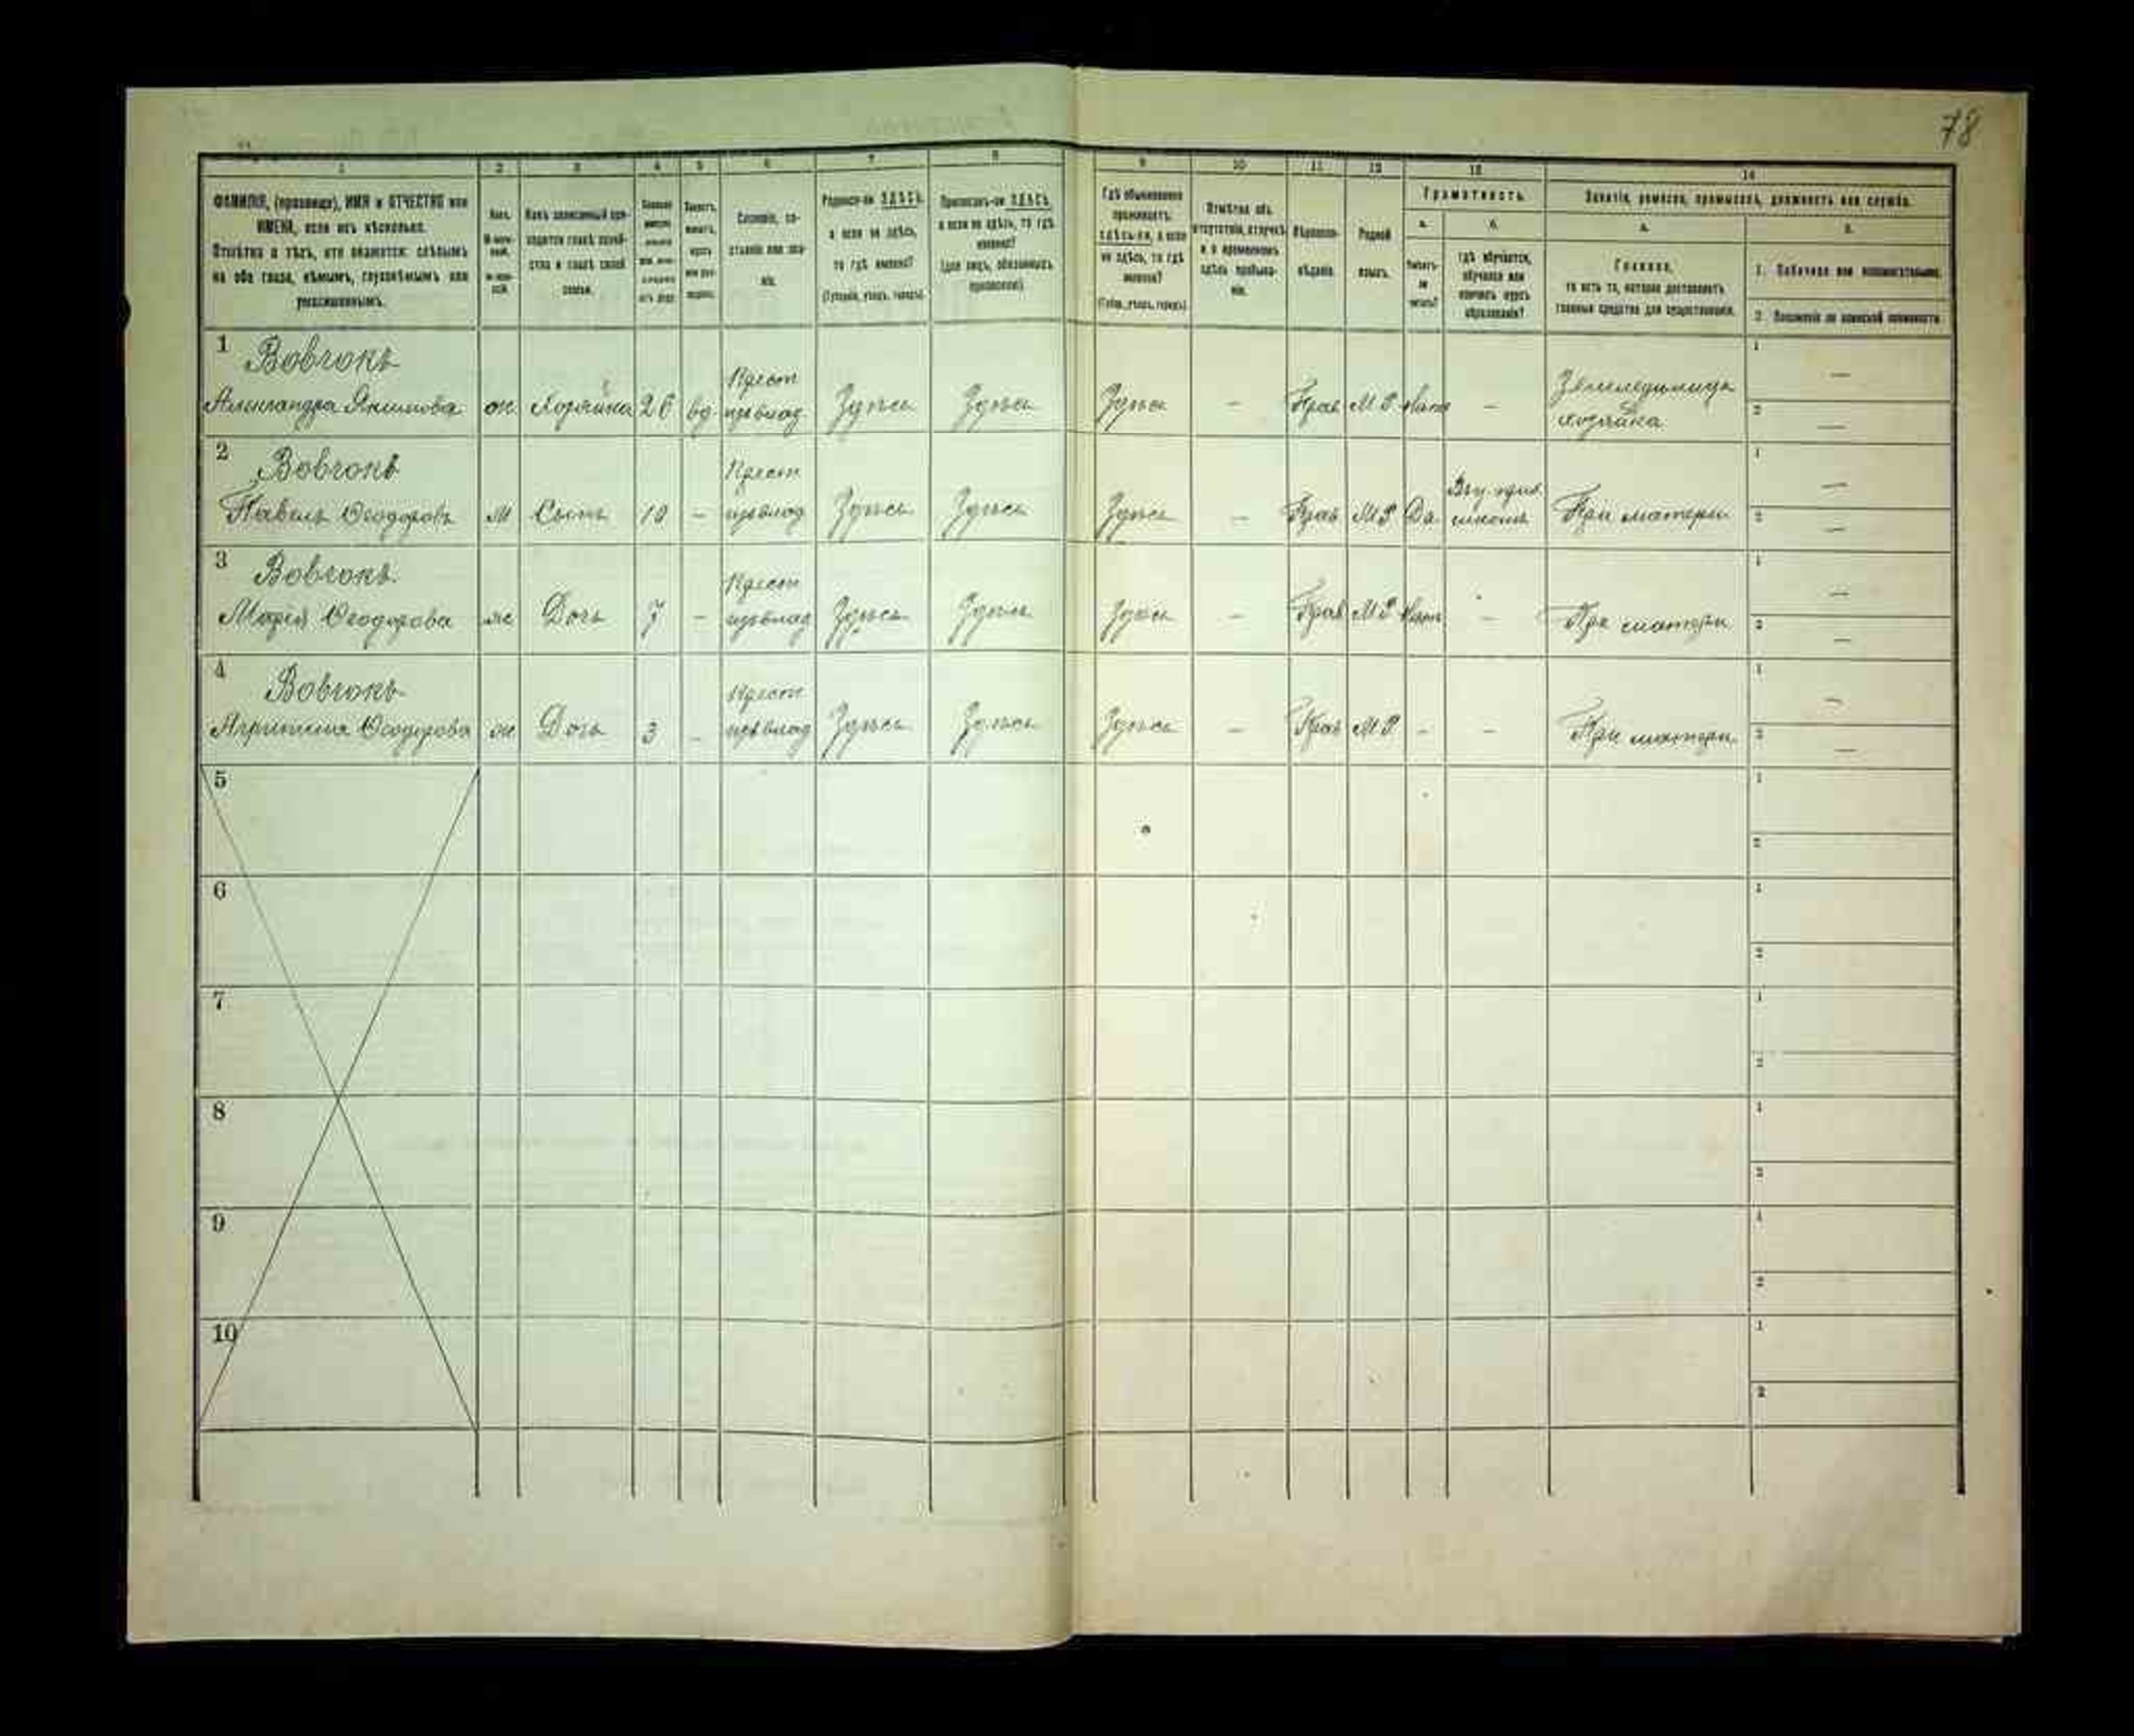 78
1 2 3 4 5 6 7 8 9 10 11 12 13 14
ФАМИЛІЯ, (прозвище), ИМЯ и ОТЧЕСТВО или
ИМЕНА, если ихъ нѣсколько.
Отмѣтка о тѣхъ, кто окажется: слѣпымъ
на оба глаза, нѣмымъ, глухонѣмымъ или
умалишеннымъ.
Сословіе, со-
стояніе или зва-
ніе.
Родился-ли ЗДѢСЬ,
а если не здѣсь,
то гдѣ именно?
(Губернія, уѣздъ, городъ).
Приписанъ-ли ЗДѢСЬ,
а если не здѣсь, то гдѣ
именно?
(для лицъ, обязанныхъ
припискою)
Гдѣ обыкновенно
проживаетъ:
здѣсь-ли, а если
не здѣсь, то гдѣ
именно?
(Губ., уѣздъ, городъ)
Отмѣтка объ
отсутствіи, отлучкѣ
и о временномъ
здѣсь пребыва-
ніи.
Вѣроиспо-
вѣданіе.
Родной
языкъ.
Грамотность.
а. б.
Умѣетъ-
ли
читать?
гдѣ обучается,
обучался или
кончилъ курсъ
образованія?
Занятіе, ремесло, промыселъ, должность или служба.
Главное,
то есть то, которое доставляетъ
главныя средства для существованія.
1. Побочное или вспомогательное.
2. Положеніе по воинской повинности.
1 Вовчокъ
Александра Якимова ж Хозяйка 26 вд Крест из владѣ Здѣсь Здѣсь Здѣсь — Прав М Р Нѣтъ — Земледѣлица хозяйка 1 — 2 —
2 Вовчокъ
Павелъ Ѳеодоровъ М Сынъ 10 — Крест Здѣсь Здѣсь Здѣсь — Прав М Р Да школѣ При матери 1 — 2 —
3 Вовчокъ
Марія Ѳеодорова ж Дочь 7 — Крест Здѣсь Здѣсь Здѣсь — Прав М Р Нѣтъ — При матери 1 — 2 —
4 Вовчокъ
Ѳеодорова ж Дочь 3 — Крест Здѣсь Здѣсь Здѣсь — Прав М Р — — При матери 1 — 2 —
5 1 2
6 1 2
7 1 2
8 1 2
9 1 2
10 1 2